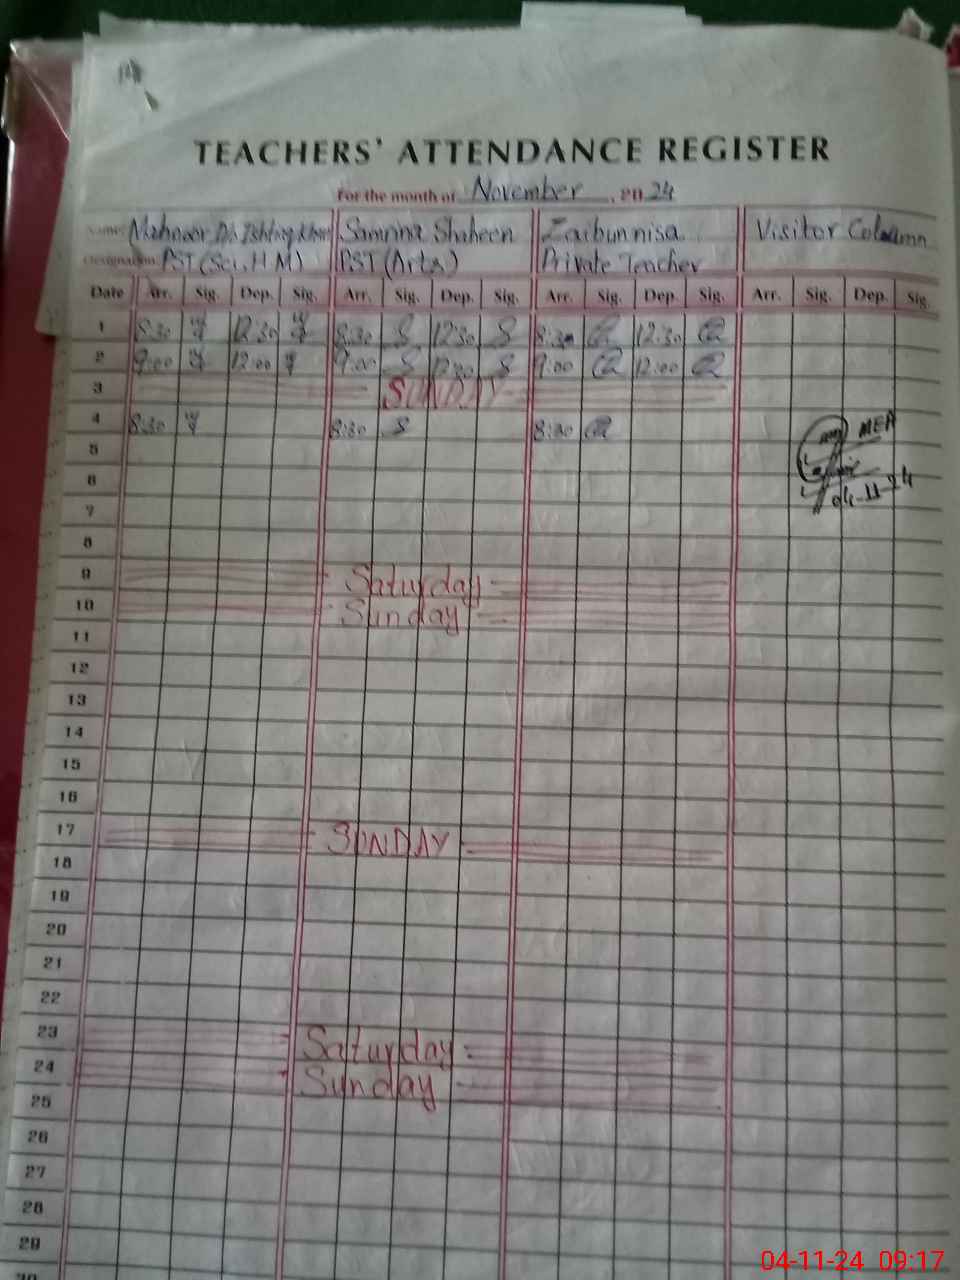 TEACHERS' ATTENDANCE REGISTER
For the month of November, 2024
Name: Mahnoor D/o Ishtiaq Khan Samrina Shaheen Zaibunnisa Visitor Column
Designation: PST (Sci, HM) PST (Arts) Private Teacher
Date Arr. Sig. Dep. Sig. Arr. Sig. Dep. Sig. Arr. Sig. Dep. Sig. Arr. Sig. Dep. Sig.
1 8:30 12:30 8:30 S 12:30 S 8:30 12:30
2 9:00 12:00 9:00 S 12:00 S 9:00 12:00
3 SUNDAY
4 8:30 8:30 S 8:30
MEA
5
6
04-11-24
7
8
9 Saturday
10 Sunday
11
12
13
14
15
16
17 SUNDAY
18
19
20
21
22
23 Saturday
24 Sunday
25
26
27
28
29
30
04-11-24 09:17